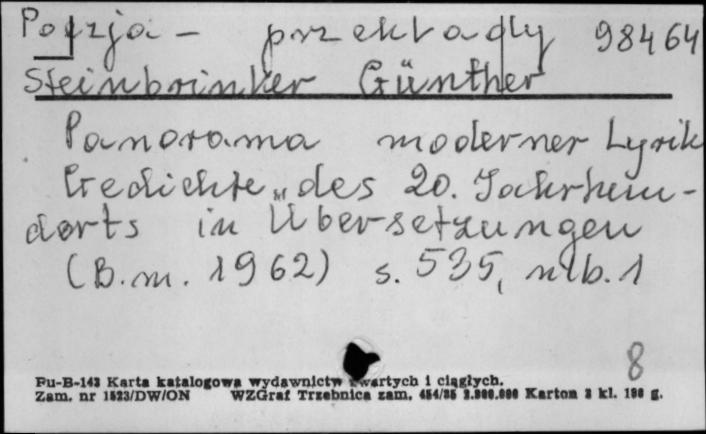 Poezja - przekłady 98464
Steinbrinker Günther
Panorama moderner Lyrik
Gedichte des 20. Jahrhun-
derts in Übersetzungen
(B.m. 1962) s. 535, nlb. 1
8
Pu-B-143 Karta katalogowa wydawnictw zwartych i ciągłych.
Zam. nr 1523/DW/ON WZGraf Trzebnica zam. 454/85 2.900.000 Karton 3 kl. 190 g.